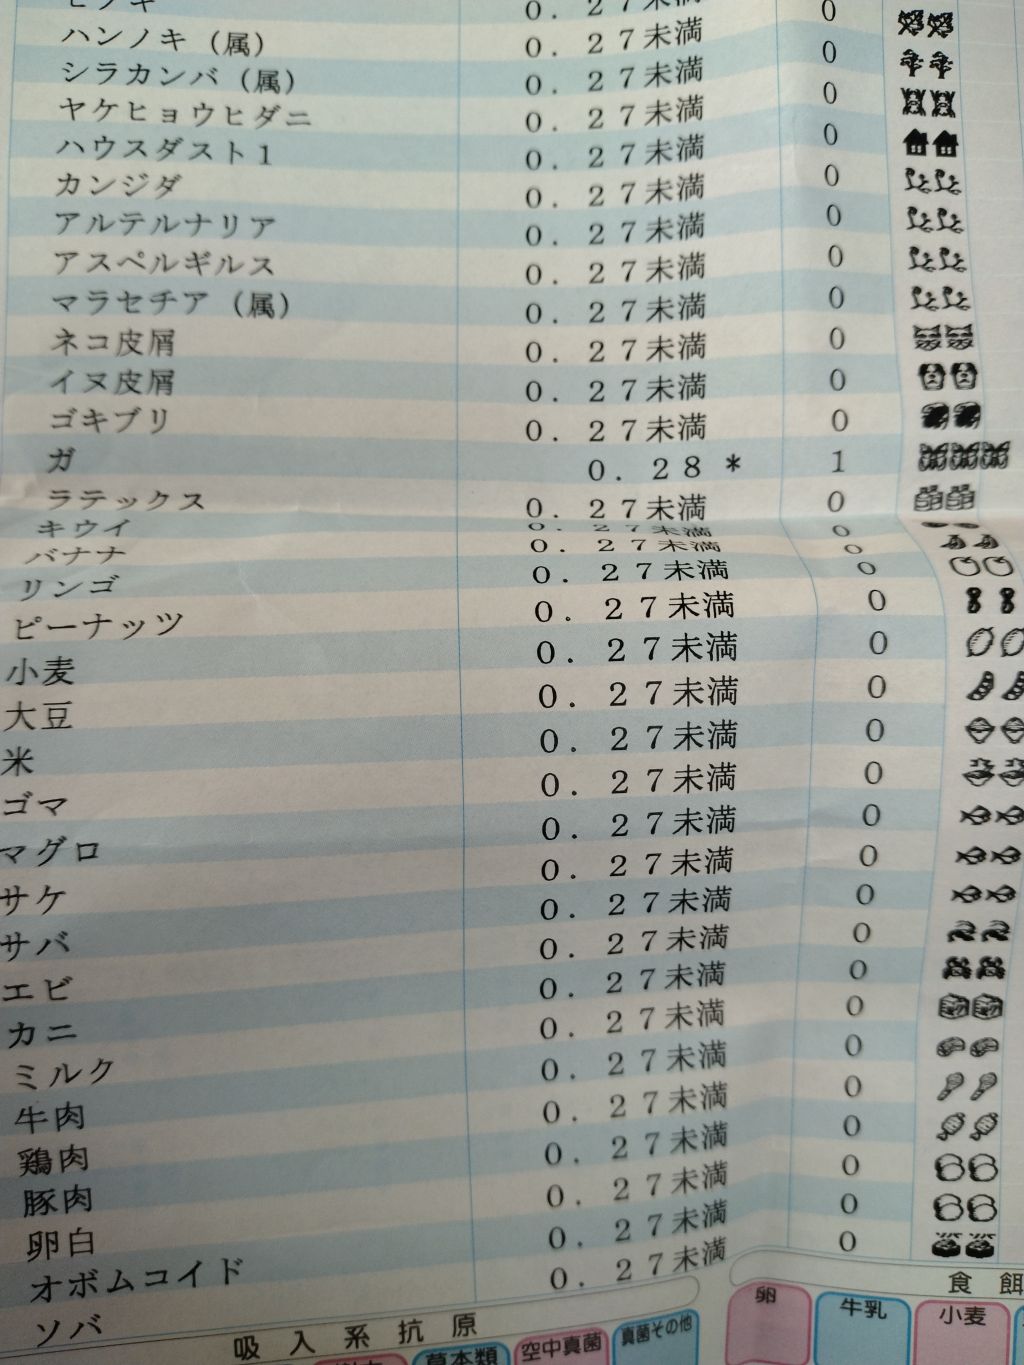 ヒノキ 0.27未満 0
ハンノキ(属) 0.27未満 0
シラカンバ(属) 0.27未満 0
ヤケヒョウヒダニ 0.27未満 0
ハウスダスト1 0.27未満 0
カンジダ 0.27未満 0
アルテルナリア 0.27未満 0
アスペルギルス 0.27未満 0
マラセチア(属) 0.27未満 0
ネコ皮屑 0.27未満 0
イヌ皮屑 0.27未満 0
ゴキブリ 0.27未満 0
ガ 0.28* 1
ラテックス 0.27未満 0
キウイ 0.27未満 0
バナナ 0.27未満 0
リンゴ 0.27未満 0
ピーナッツ 0.27未満 0
小麦 0.27未満 0
大豆 0.27未満 0
米 0.27未満 0
ゴマ 0.27未満 0
マグロ 0.27未満 0
サケ 0.27未満 0
サバ 0.27未満 0
エビ 0.27未満 0
カニ 0.27未満 0
ミルク 0.27未満 0
牛肉 0.27未満 0
鶏肉 0.27未満 0
豚肉 0.27未満 0
卵白 0.27未満 0
オボムコイド 0.27未満 0
ソバ 0.27未満 0
吸入系抗原 食餌
草本類 空中真菌 真菌その他 卵 牛乳 小麦